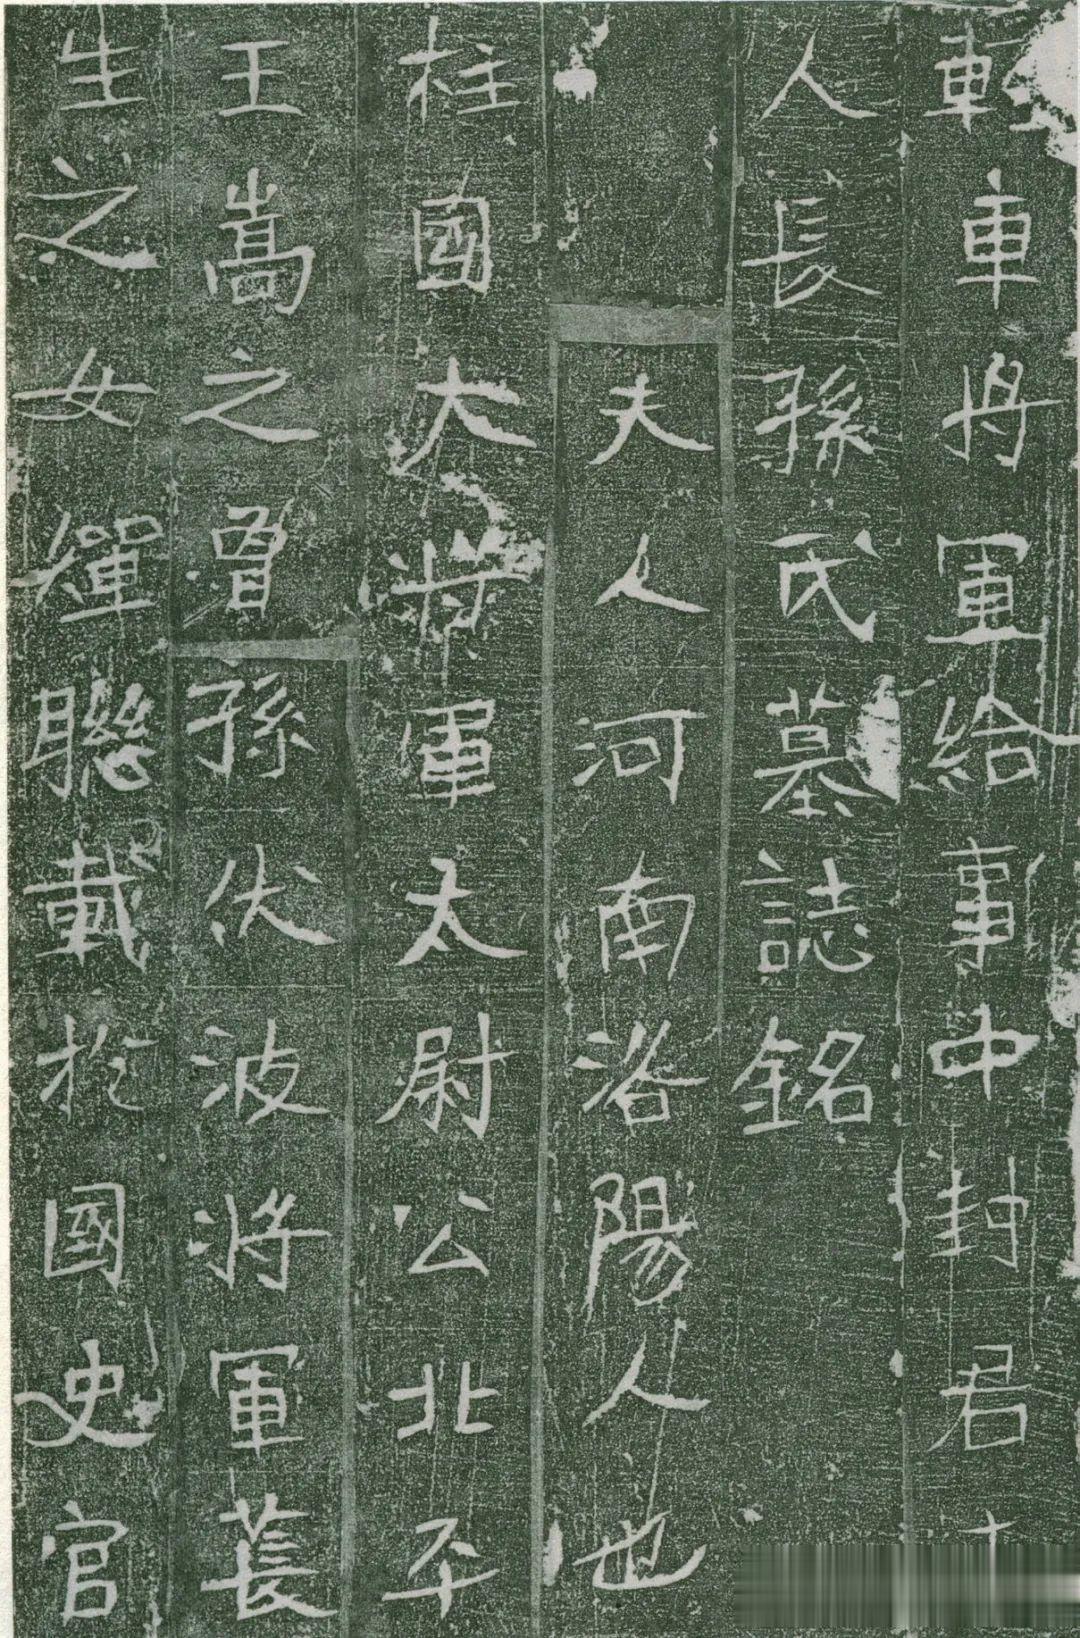 車將軍給事中封君
人長孫氏墓誌銘
夫人河南洛陽人也
柱國大將軍太尉公北平
王嵩之曾孫伏波將軍萇
生之女僤聯載於國史官